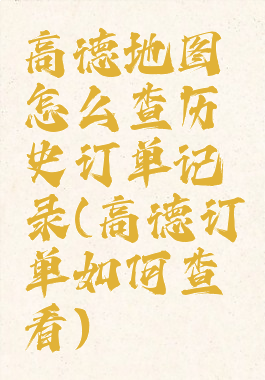 高德地图
怎么查历
史订单记
录(高德订
单如何查
看)